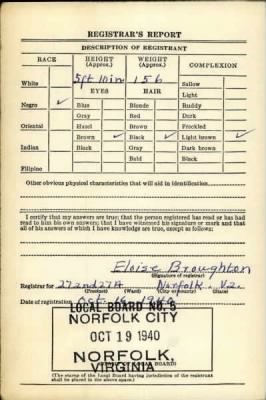 REGISTRAR'S REPORT
DESCRIPTION OF REGISTRANT
RACE HEIGHT (Approx.) WEIGHT (Approx.) COMPLEXION
White 5 ft 10 in 156 Sallow
EYES HAIR Light
Negro ✓ Blue Blonde Ruddy
Gray Red Dark
Oriental Hazel Brown Freckled
Brown ✓ Black ✓ Light brown ✓
Indian Black Gray Dark brown
Bald Black
Filipino
Other obvious physical characteristics that will aid in identification
I certify that my answers are true; that the person registered has read or has had
read to him his own answers; that I have witnessed his signature or mark and that
all of his answers of which I have knowledge are true, except as follows:
Eloise Broughton
(Signature of registrar)
Registrar for Norfolk Va.
(Precinct) (Ward) (City or county) (State)
Date of registration Oct. 16 1940
LOCAL BOARD NO. 5
NORFOLK CITY
OCT 19 1940
NORFOLK,
VIRGINIA
(The stamp of the Local Board having jurisdiction of the registrant
shall be placed in the above space.)